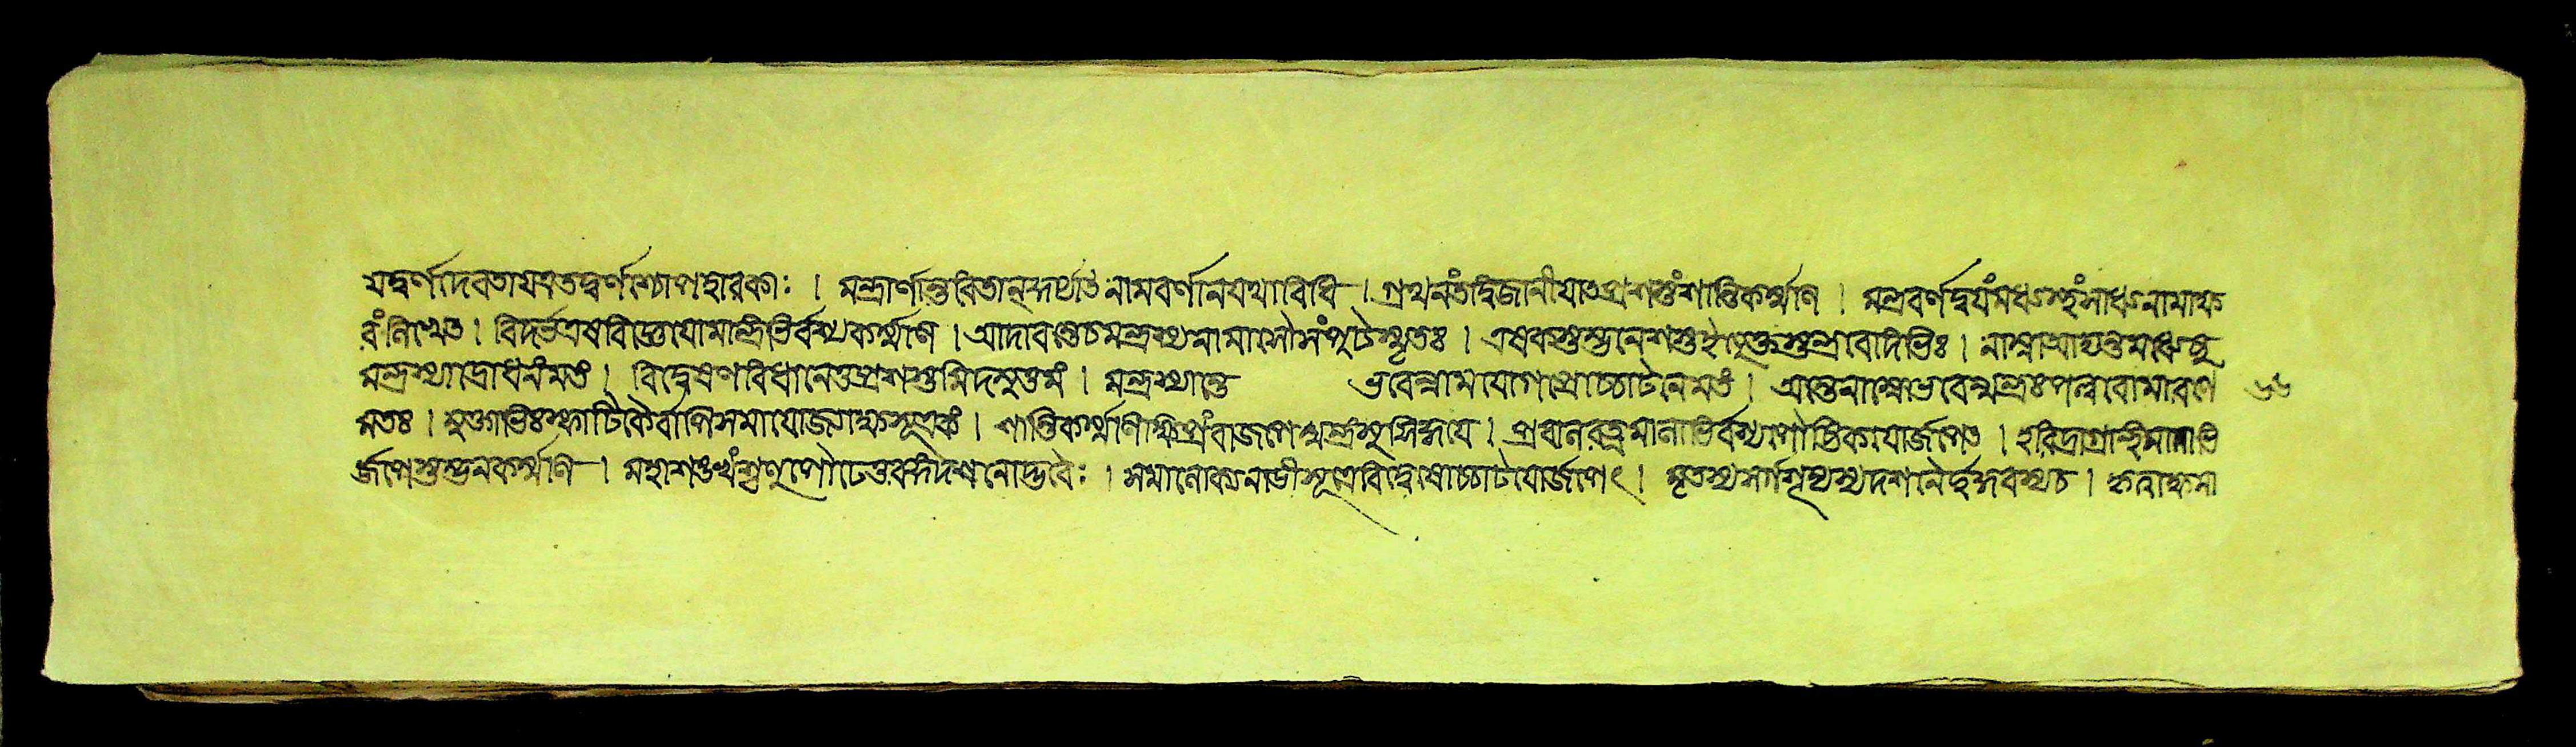 যদ্বর্ণাদেবতাযত্রতদ্বর্ণাশ্চোপহারকাঃ । মন্ত্রার্ণান্তরিতানকুর্য্যাৎ নামবর্ণানযথাবিধি । গ্রথনংতদ্বিজানীযাৎপ্রশস্তংশান্তিকর্ম্মণি । মন্ত্রবর্ণদ্বযংমধ্যস্থংসাধ্যনামাক্ষ
রংলিখেত । বিদর্ভএষবিজ্ঞেযোমান্ত্রিভির্বশ্যকর্ম্মণি । আদাবন্তেচমন্ত্রস্যনামোসৌসংপুটঃস্মৃতঃ । এষবস্তম্ভনেশস্তইত্যুক্তমন্ত্রবাদিভিঃ । নাম্নআদ্যন্তমধ্যেষু
মন্ত্রস্যাদ্রোধনংমতং । বিদ্বেষণবিধানেতুপ্রশস্তমিদমুত্তমং । মন্ত্রস্যান্তে ভবেন্নামযোগপ্রোচ্চাটনেমতং । অন্তেনাম্নোভবেন্মন্ত্রঃপল্লবোমারণে ৬৬
মতঃ । মুক্তাভিঃস্ফাটিকৈর্বাপিসমাযোজ্যাক্ষসূত্রকং । শান্তিকর্ম্মণিক্ষিপ্রংবাজপেন্মন্ত্রংসুসিদ্ধযে । প্রবালরত্নমালাভির্বশ্যপৌষ্টিকযোর্জপেৎ । হরিদ্রাগ্রন্থিমালাভি
র্জপেস্তম্ভনকর্ম্মণি । মহাশঙখং দশনোদ্ভবৈঃ । সূত্রেবিদ্বেষোচ্চাটযোর্জপেৎ । মৃতস্য দশনৈর্গর্দ্দভস্যচ । কৃত্বাক্ষমা